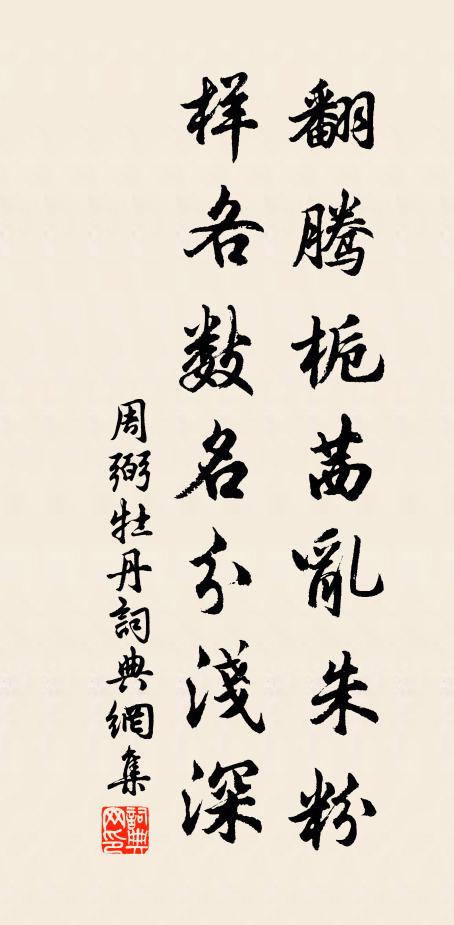 翻騰栀茜亂朱粉
样各数名分淺深
周弼牡丹詞典網集
詞典网印